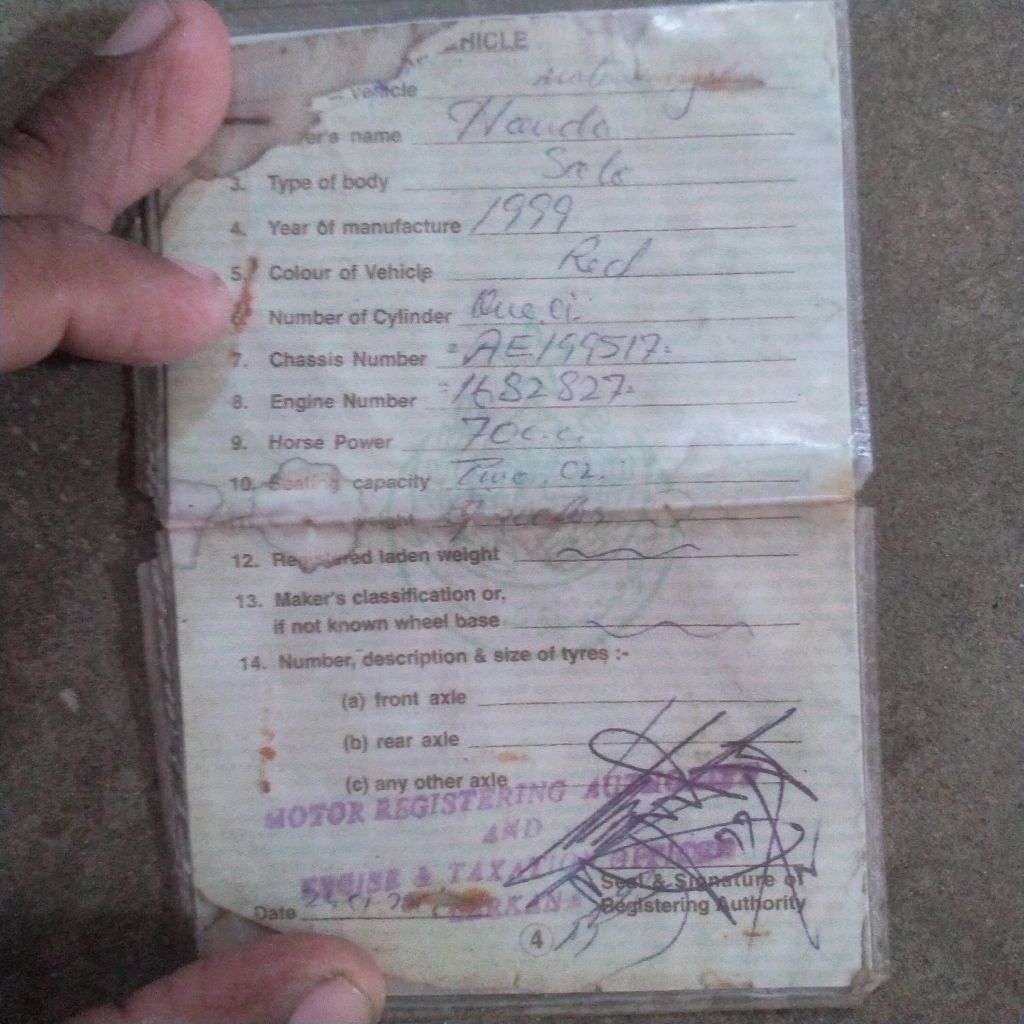 HICLE
Vehicle
er's name Honda
3. Type of body
4. Year of manufacture 1999
5. Colour of Vehicle Red
6. Number of Cylinder One
7. Chassis Number =AE199517=
8. Engine Number =1682827=
9. Horse Power 70c.c.
10. Seating capacity Two
weight
12. Registered laden weight
13. Maker's classification or,
if not known wheel base
14. Number, description & size of tyres :-
(a) front axle
(b) rear axle
(c) any other axle
MOTOR REGISTERING AUTHORITY
AND
EXCISE & TAXATION OFFICER
LARKANA
Seal & Signature of
Date
Registering Authority
4